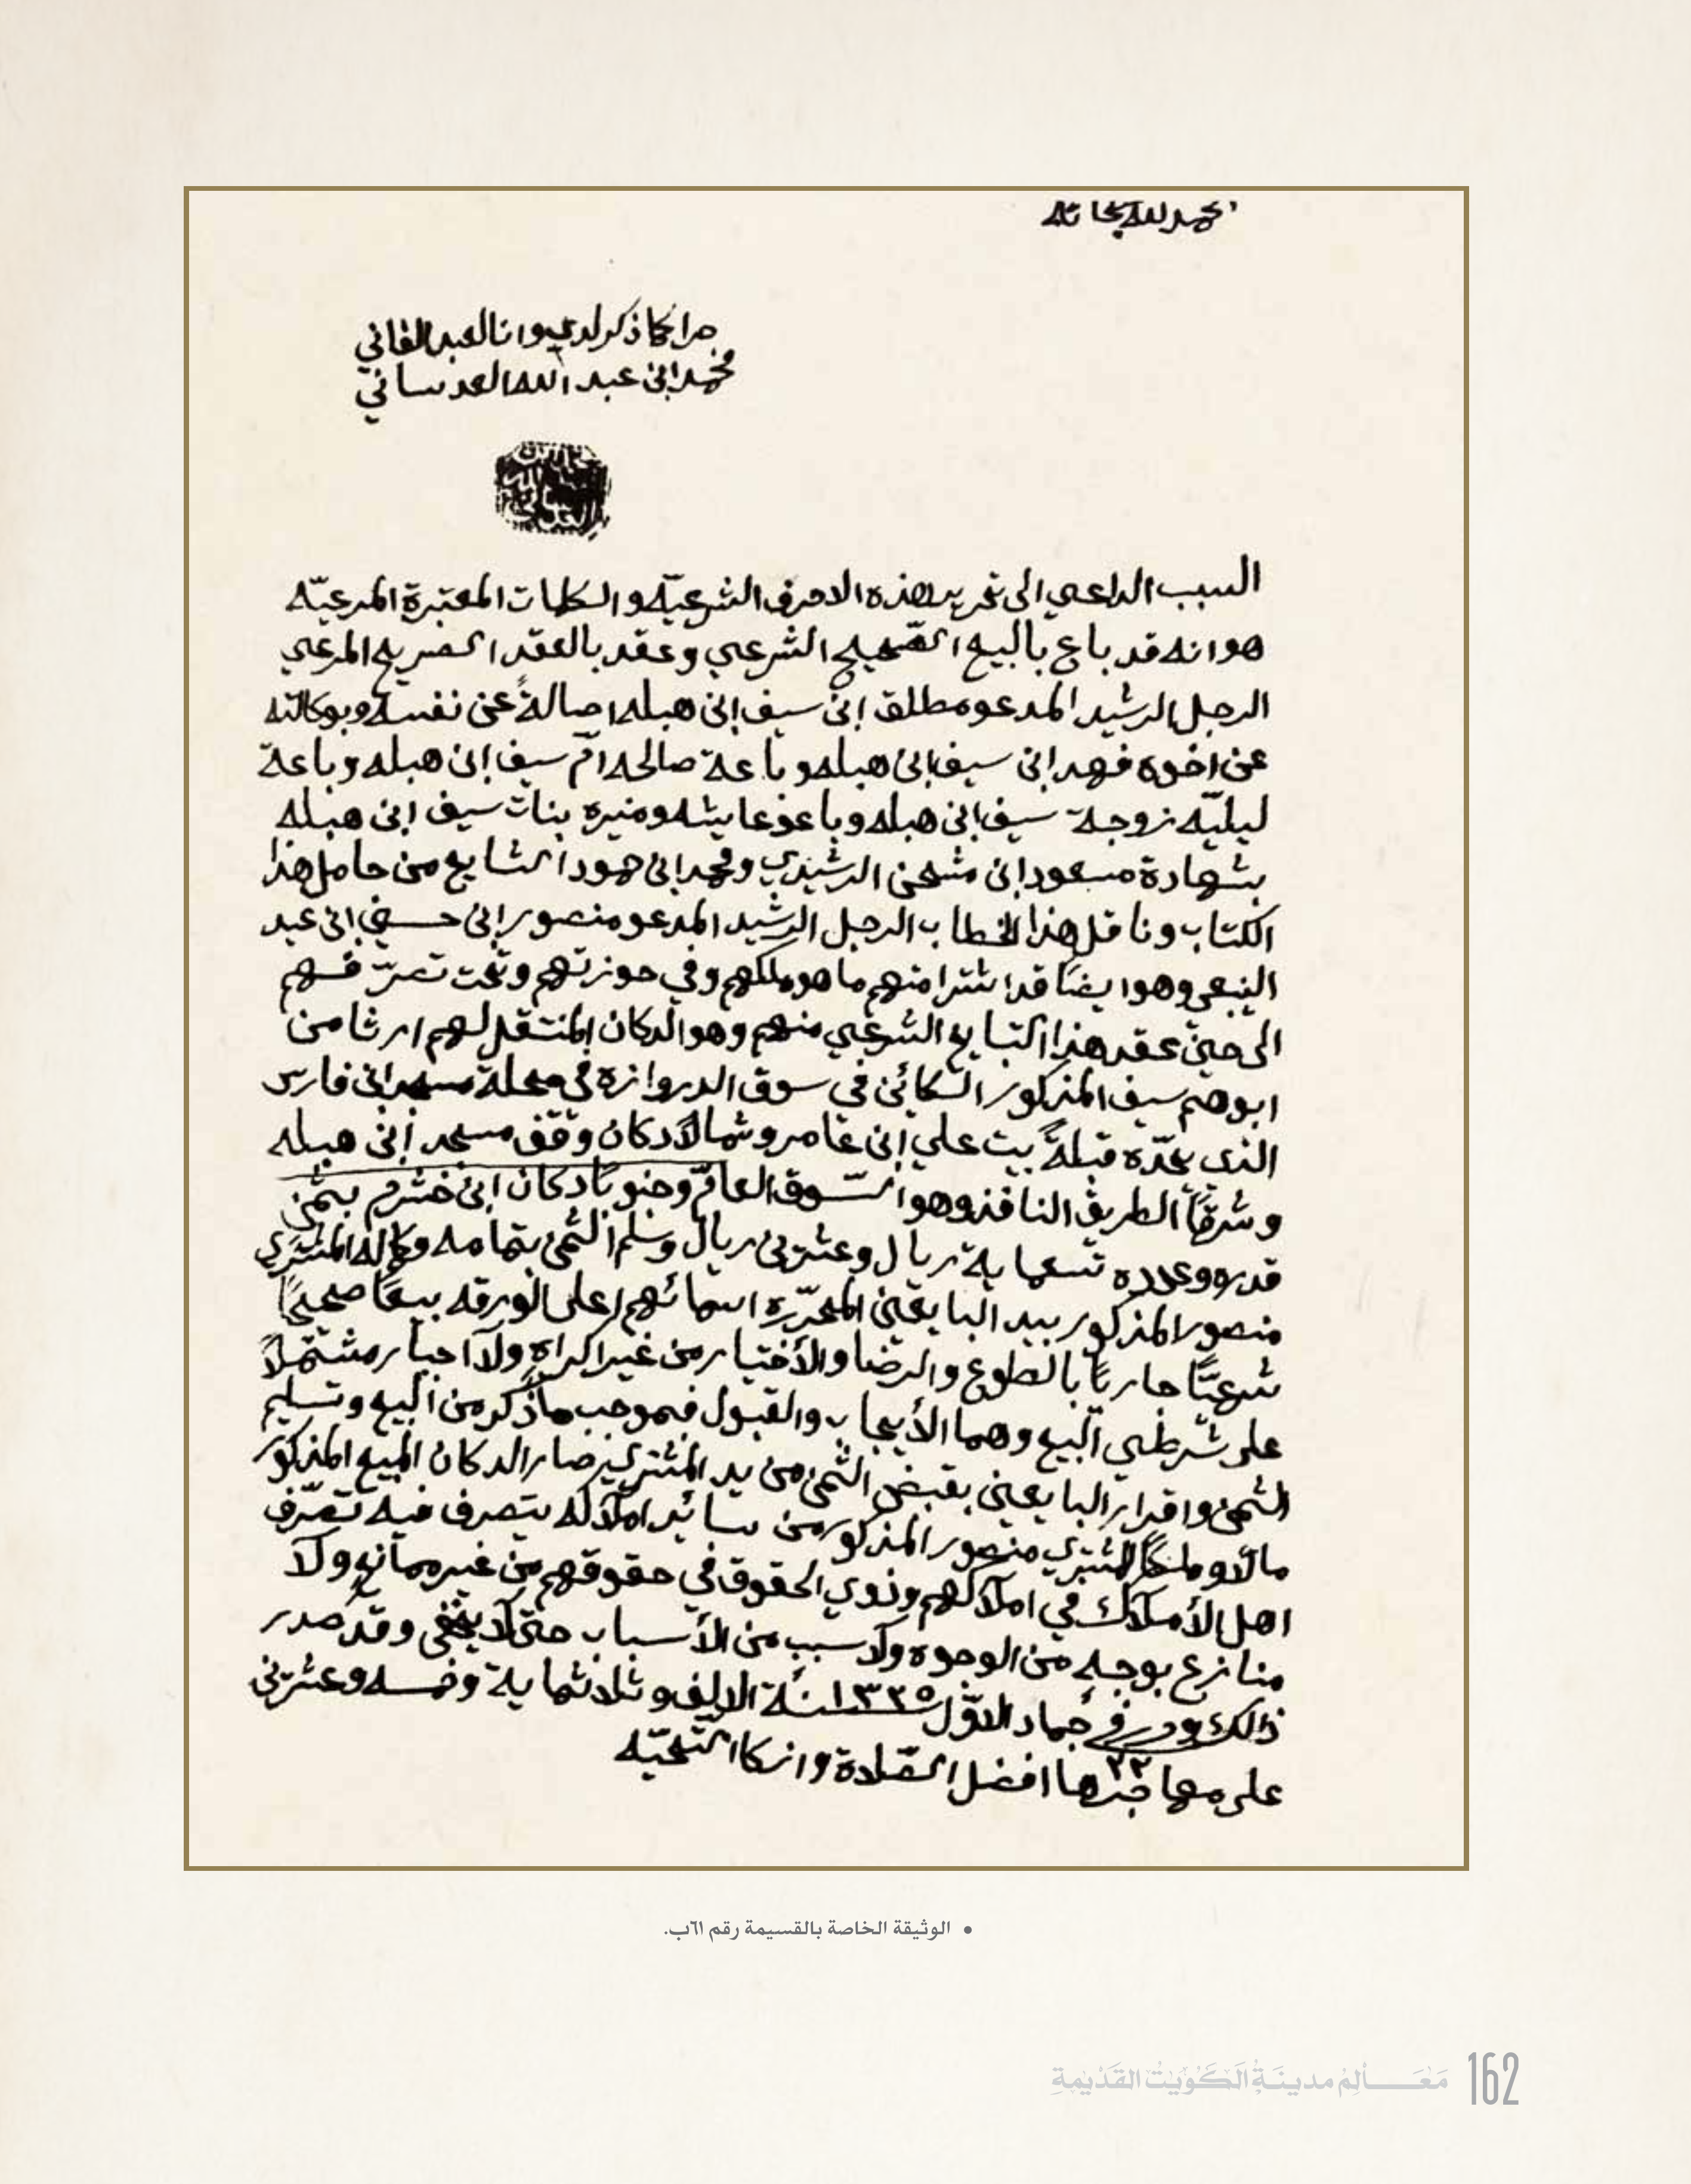 الحمد لله سبحانه
جرا كما ذكر لدي وانا العبد الفاني
محمد ابن عبد الله العدساني
السبب الداعي الى تحرير هذه الاحرف الشرعيّه والكلمات المعتبرة المرعيّه
هو انه قد باع بالبيع الصّحيح الشرعي وعقد بالعقد الصريح المرعي
الرجل الرشيد المدعو مطلق ابن سيف ابن هبله اصالةً عن نفسه وبوكالته
عن اخوه فهد ابن سيف ابن هبله وباعة صالحه امّ سيف ابن هبله وباعة
ليليّه زوجة سيف ابن هبله وباعو عايشه ومنيره بنات سيف ابن هبله
بشهادة مسعود ابن مشحن الرشيدي ومحمد ابن حمود الشايع من حامل هذا
الكتاب وناقل هذا الخطاب الرجل الرشيد المدعو منصور ابن حسين ابن عبد
النبعي وهو ايضًا قد اشترا منهم ما هو ملكهم وفي حوزتهم وتحت تصرّفهم
الى حين عقد هذا التبايع الشرعي منهم وهو الدكان المنتقل لهم ارثا من
ابوهم سيف المذكور الكائن في سوق الدروازة في محلة مسجد ابن فارس
الذي يحدّه قبلةً بيت علي ابن عامر وشمالاً دكان وقف مسجد ابن هبله
وشرقاً الطريق النافذ وهو السّوق العامّ وجنوبًا دكان ابن خشرم بثمن
قدره وعدده تسعماية ريال وعشرين ريال وسلم الثمن بتمامه وكماله المشتري
منصور المذكور بيد البايعين المحرّره اسمائهم اعلى الورقه بيعًا صحيحًا
شرعيًّا جاريًا بالطوع والرضا والأختيار من غير اكراهٍ ولا اجبار مشتملاً
على شرطي البيع وهما الأيجاب والقبول فبموجب ما ذكر من البيع وتسليم
الثمن واقرار البايعين بقبض الثمن من يد المشتري صار الدكان المبيع المذكور
مالاً وملكًا للمشتري منصور المذكور من سائر املاكه يتصرف فيه تصرّف
اهل الأملاك في املاكهم وذوي الحقوق في حقوقهم من غير ممانعٍ ولا
منازع بوجهٍ من الوجوه ولا سبب من الأسباب حتى لا يخفى وقد صدر
ذلك وحرر في جماد الاوّل ١٣٢٥ سنة الالف وثلاثماية وخمسه وعشرين
٢٢
على مهاجرها افضل الصّلاة وازكا التّحيّه
• الوثيقة الخاصة بالقسيمة رقم ٦١ب.
مَعَالِمُ مدينَةِ الكُوَيْتْ القَدْيمةِ 162